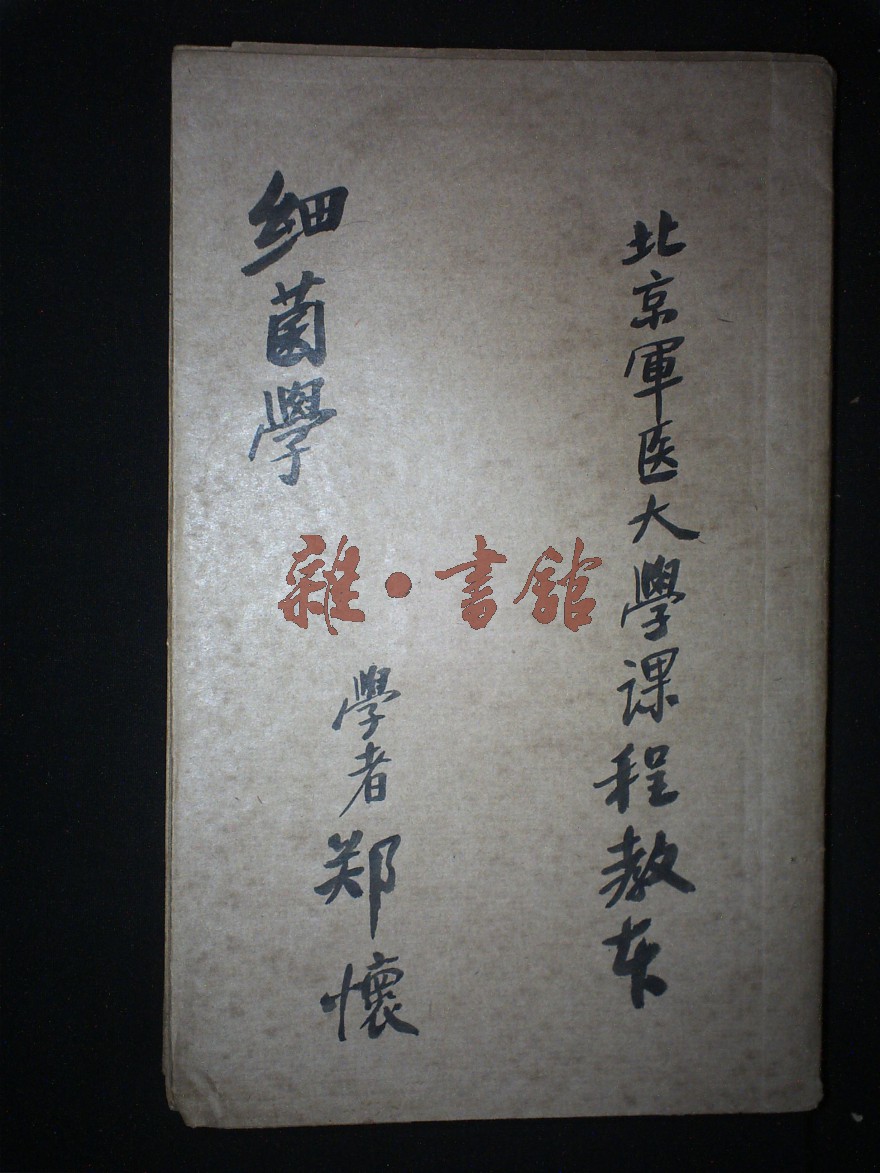 北京軍医大學课程教本
學者郑懷
细菌學
雜·書舘